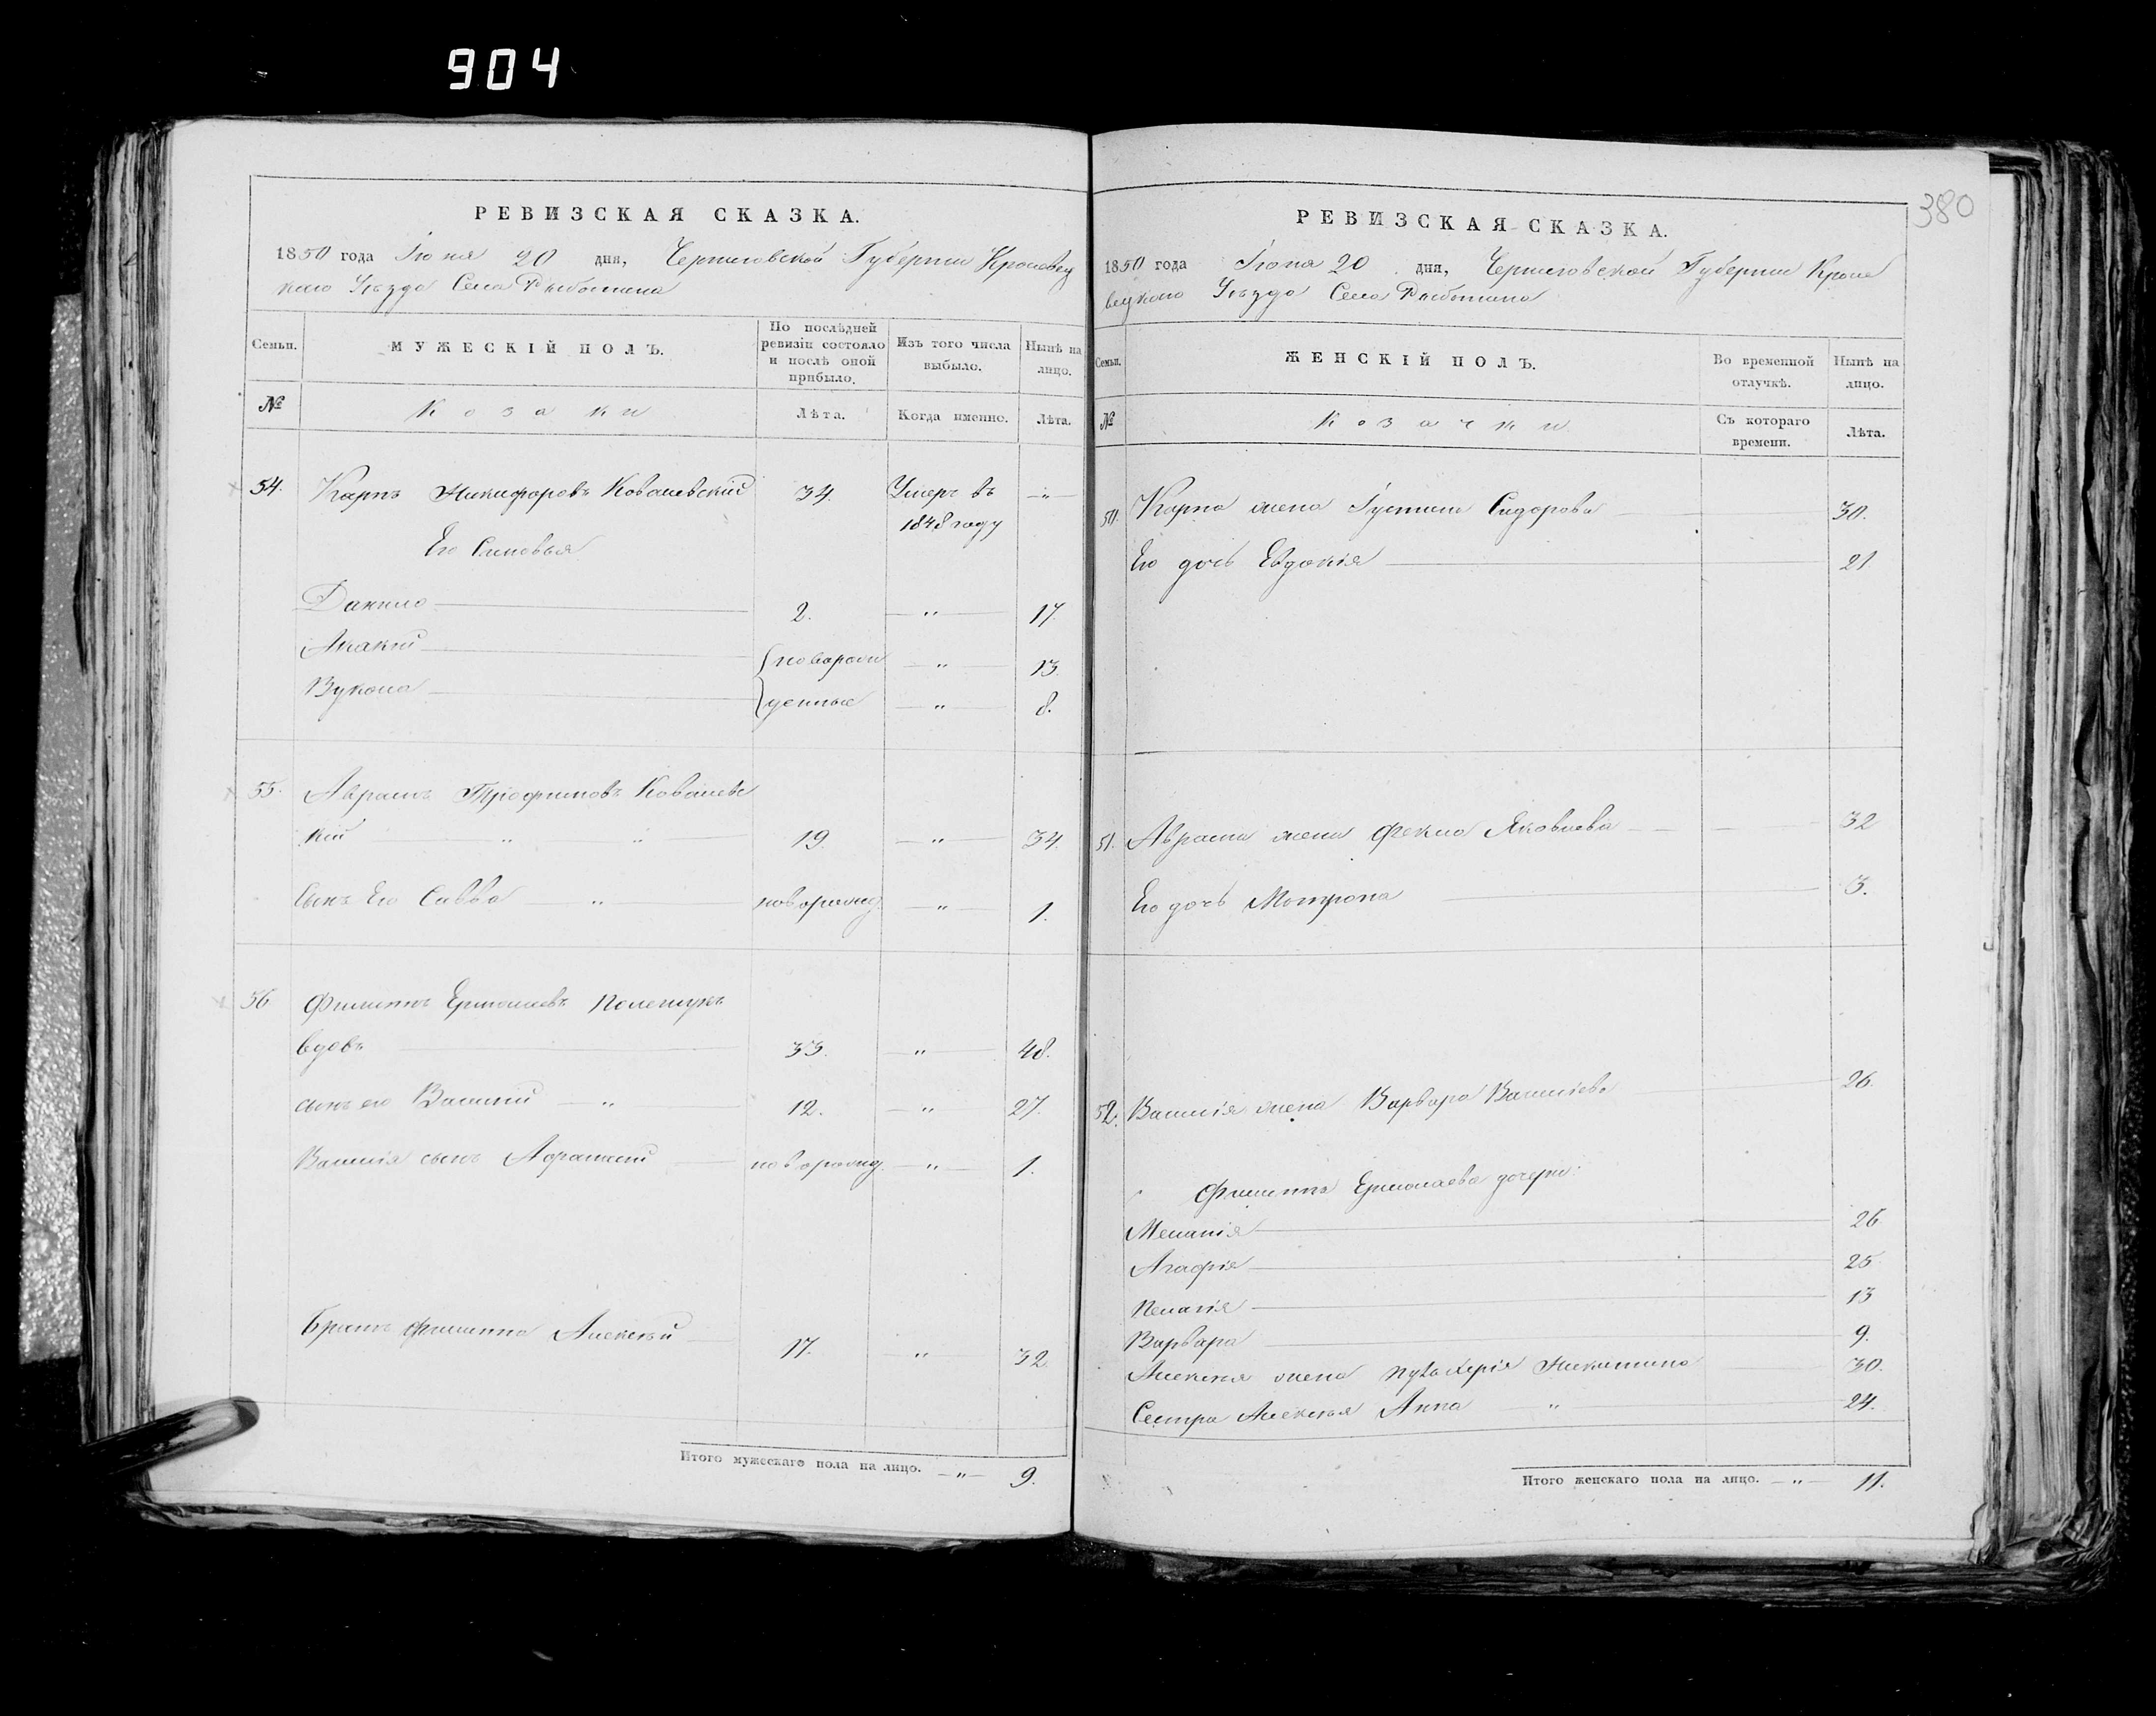 904
380
РЕВИЗСКАЯ СКАЗКА.
1850 года Іюня 20 дня, Черниговской Губерніи Кролевец
каго Уѣзда Села Рыботина
Семьи.
МУЖЕСКІЙ ПОЛЪ.
По послѣдней ревизіи состояло и послѣ оной прибыло.
Изъ того числа выбыло.
Нынѣ на лицо.
№
Козаки
Лѣта.
Когда именно.
Лѣта.
54. Карпъ Никифоровъ Ковалевскій 34. Умеръ въ — " —
1848 году
Его Сыновья
Данило 2. — " — 17.
Акакій {новорож — " — 13.
Вукола денные — " — 8.
55. Аврамъ Трофимовъ Ковалевс
кій " " 19. — " — 34.
Сынъ Его Савва — " новорожд. — " — 1.
56 Филиппъ Ермолаевъ
вдовъ 33. — " — 48.
сынъ его Василій — " — 12. — " — 27.
Василія сынъ новорожд. — " — 1.
Братъ Филиппа Алексѣй 17. — " — 32.
Итого мужескаго пола на лицо. — " — 9.
РЕВИЗСКАЯ СКАЗКА.
1850 года Іюня 20 дня, Черниговской Губерніи Кроле
вецкаго Уѣзда Села Рыботина
Семьи.
ЖЕНСКІЙ ПОЛЪ.
Во временной отлучкѣ.
Нынѣ на лицо.
№
Козачки
Съ котораго времени.
Лѣта.
50. Карпа жена Іустина Сидорова 30.
Его дочь Евдокія 21
51. Аврама жена Фекла Яковлева 32
Его дочь Мотрона 3.
52. Василія жена Варвара Василіева 26.
Филиппа Ермолаева дочери:
Меланія 26
Агафія 25
Пелагія 13
Варвара 9.
Алексѣя жена Пульхерія Никитина 30.
Сестра Алексѣя Анна " 24.
Итого женскаго пола на лицо. — " — 11.